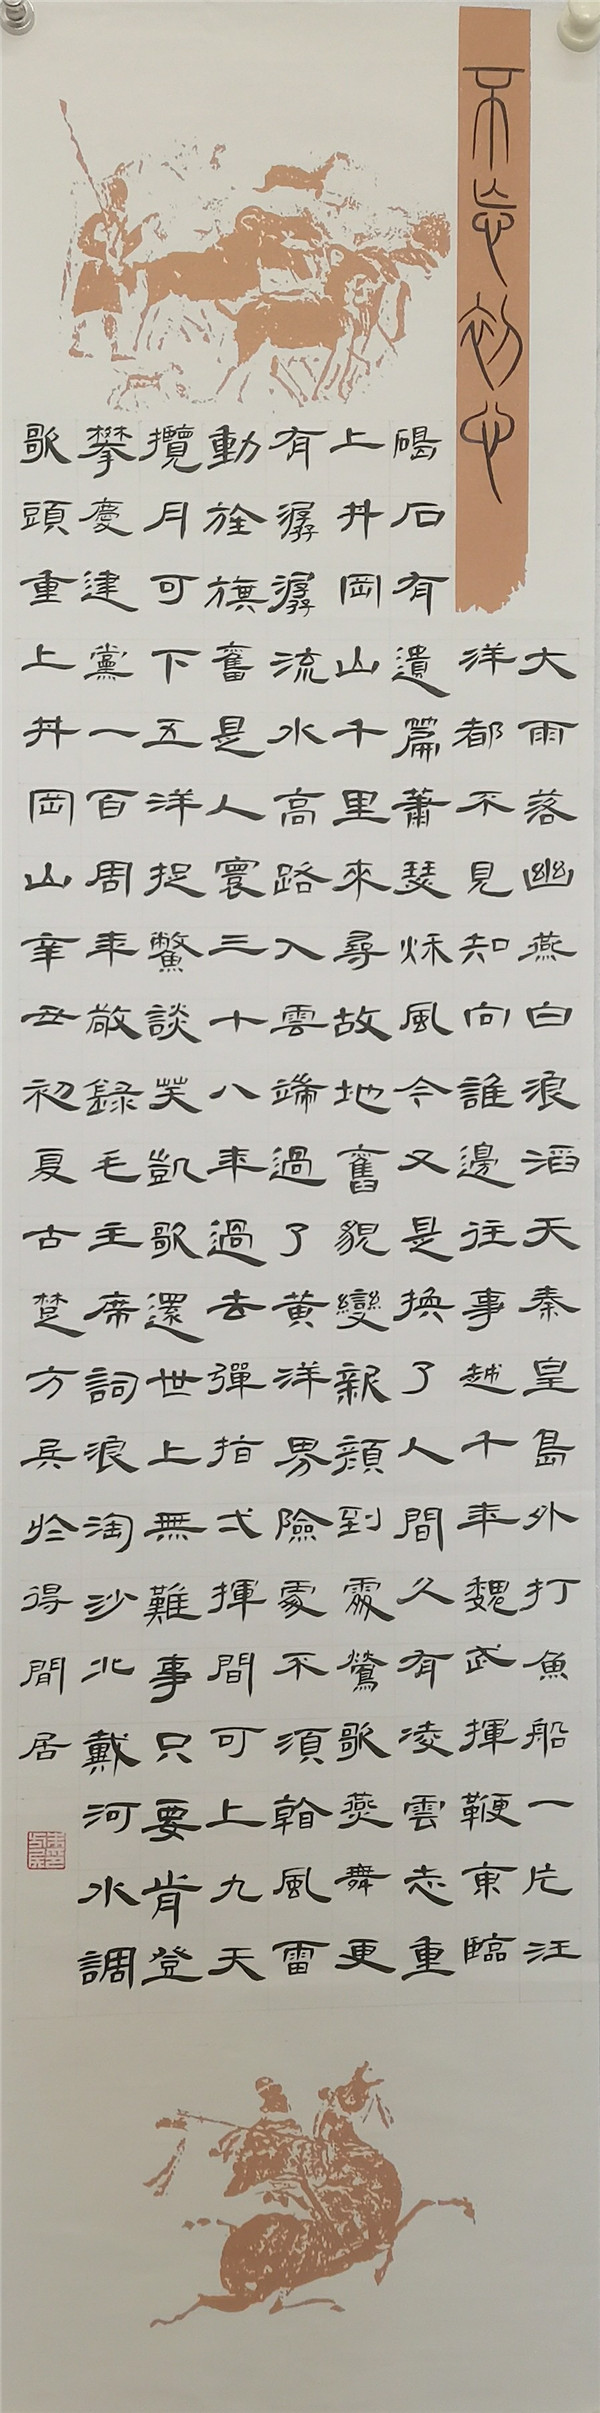 不忘初心
大雨落幽燕白浪滔天秦皇島外打魚船一片汪
洋都不見知向誰邊往事越千年魏武揮鞭東臨
碣石有遺篇蕭瑟秌風今又是換了人間久有凌雲志重
上井岡山千里來尋故地舊貌變新顏到處鶯歌燕舞更
有潺潺流水高路入雲端過了黃洋界險處不須看風雷
動旌旗奮是人寰三十八年過去彈指弌揮間可上九天
攬月可下五洋捉鱉談笑凱歌還世上無難事只要肯登
攀慶建黨一百周年敬錄毛主席詞浪淘沙北戴河水調
歌頭重上井岡山辛丑初夏古楚方兵於得閒居